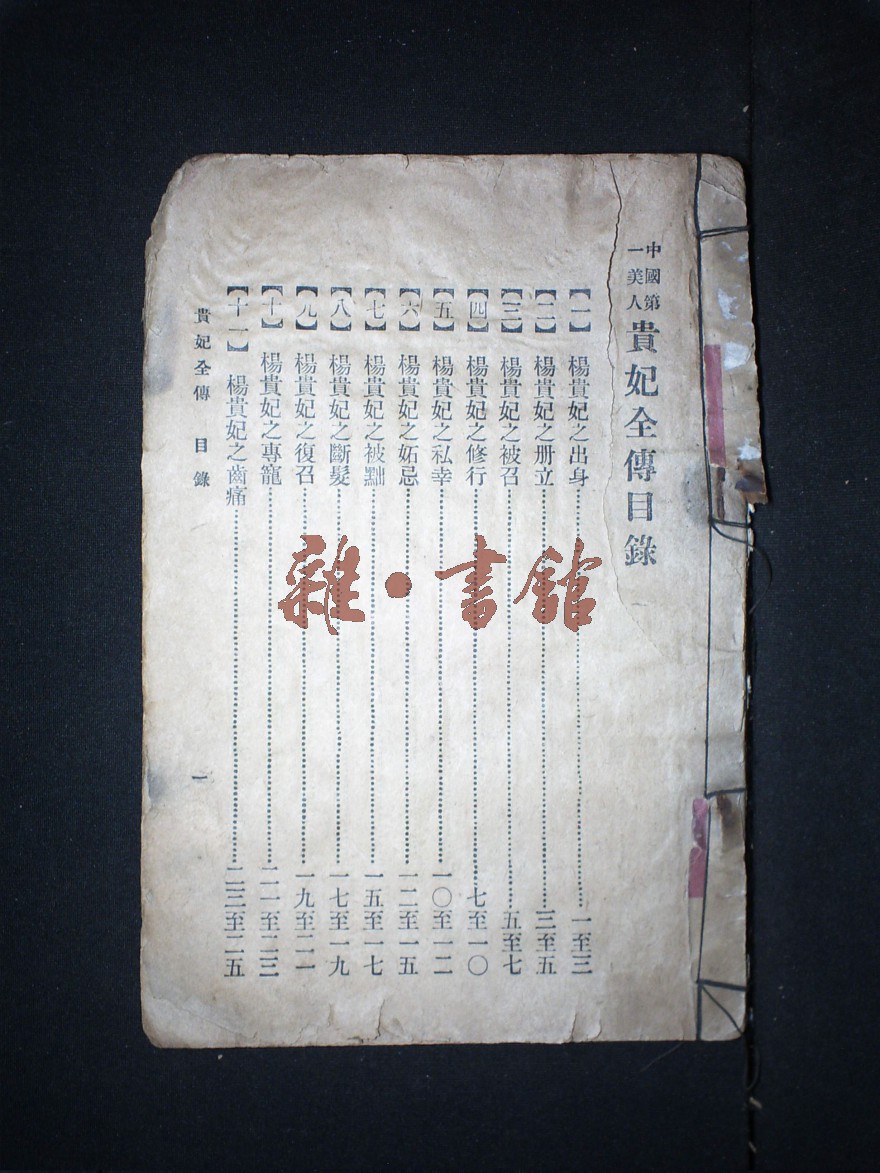 中國第一美人 貴妃全傳目錄
【一】 楊貴妃之出身……一至三
【二】 楊貴妃之册立……三至五
【三】 楊貴妃之被召……五至七
【四】 楊貴妃之修行……七至一〇
【五】 楊貴妃之私幸……一〇至一二
【六】 楊貴妃之妬忌……一二至一五
【七】 楊貴妃之被黜……一五至一七
【八】 楊貴妃之斷髮……一七至一九
【九】 楊貴妃之復召……一九至二一
【十】 楊貴妃之專寵……二一至二三
【十一】 楊貴妃之齒痛……二三至二五
貴妃全傳 目錄 一
雜·書館